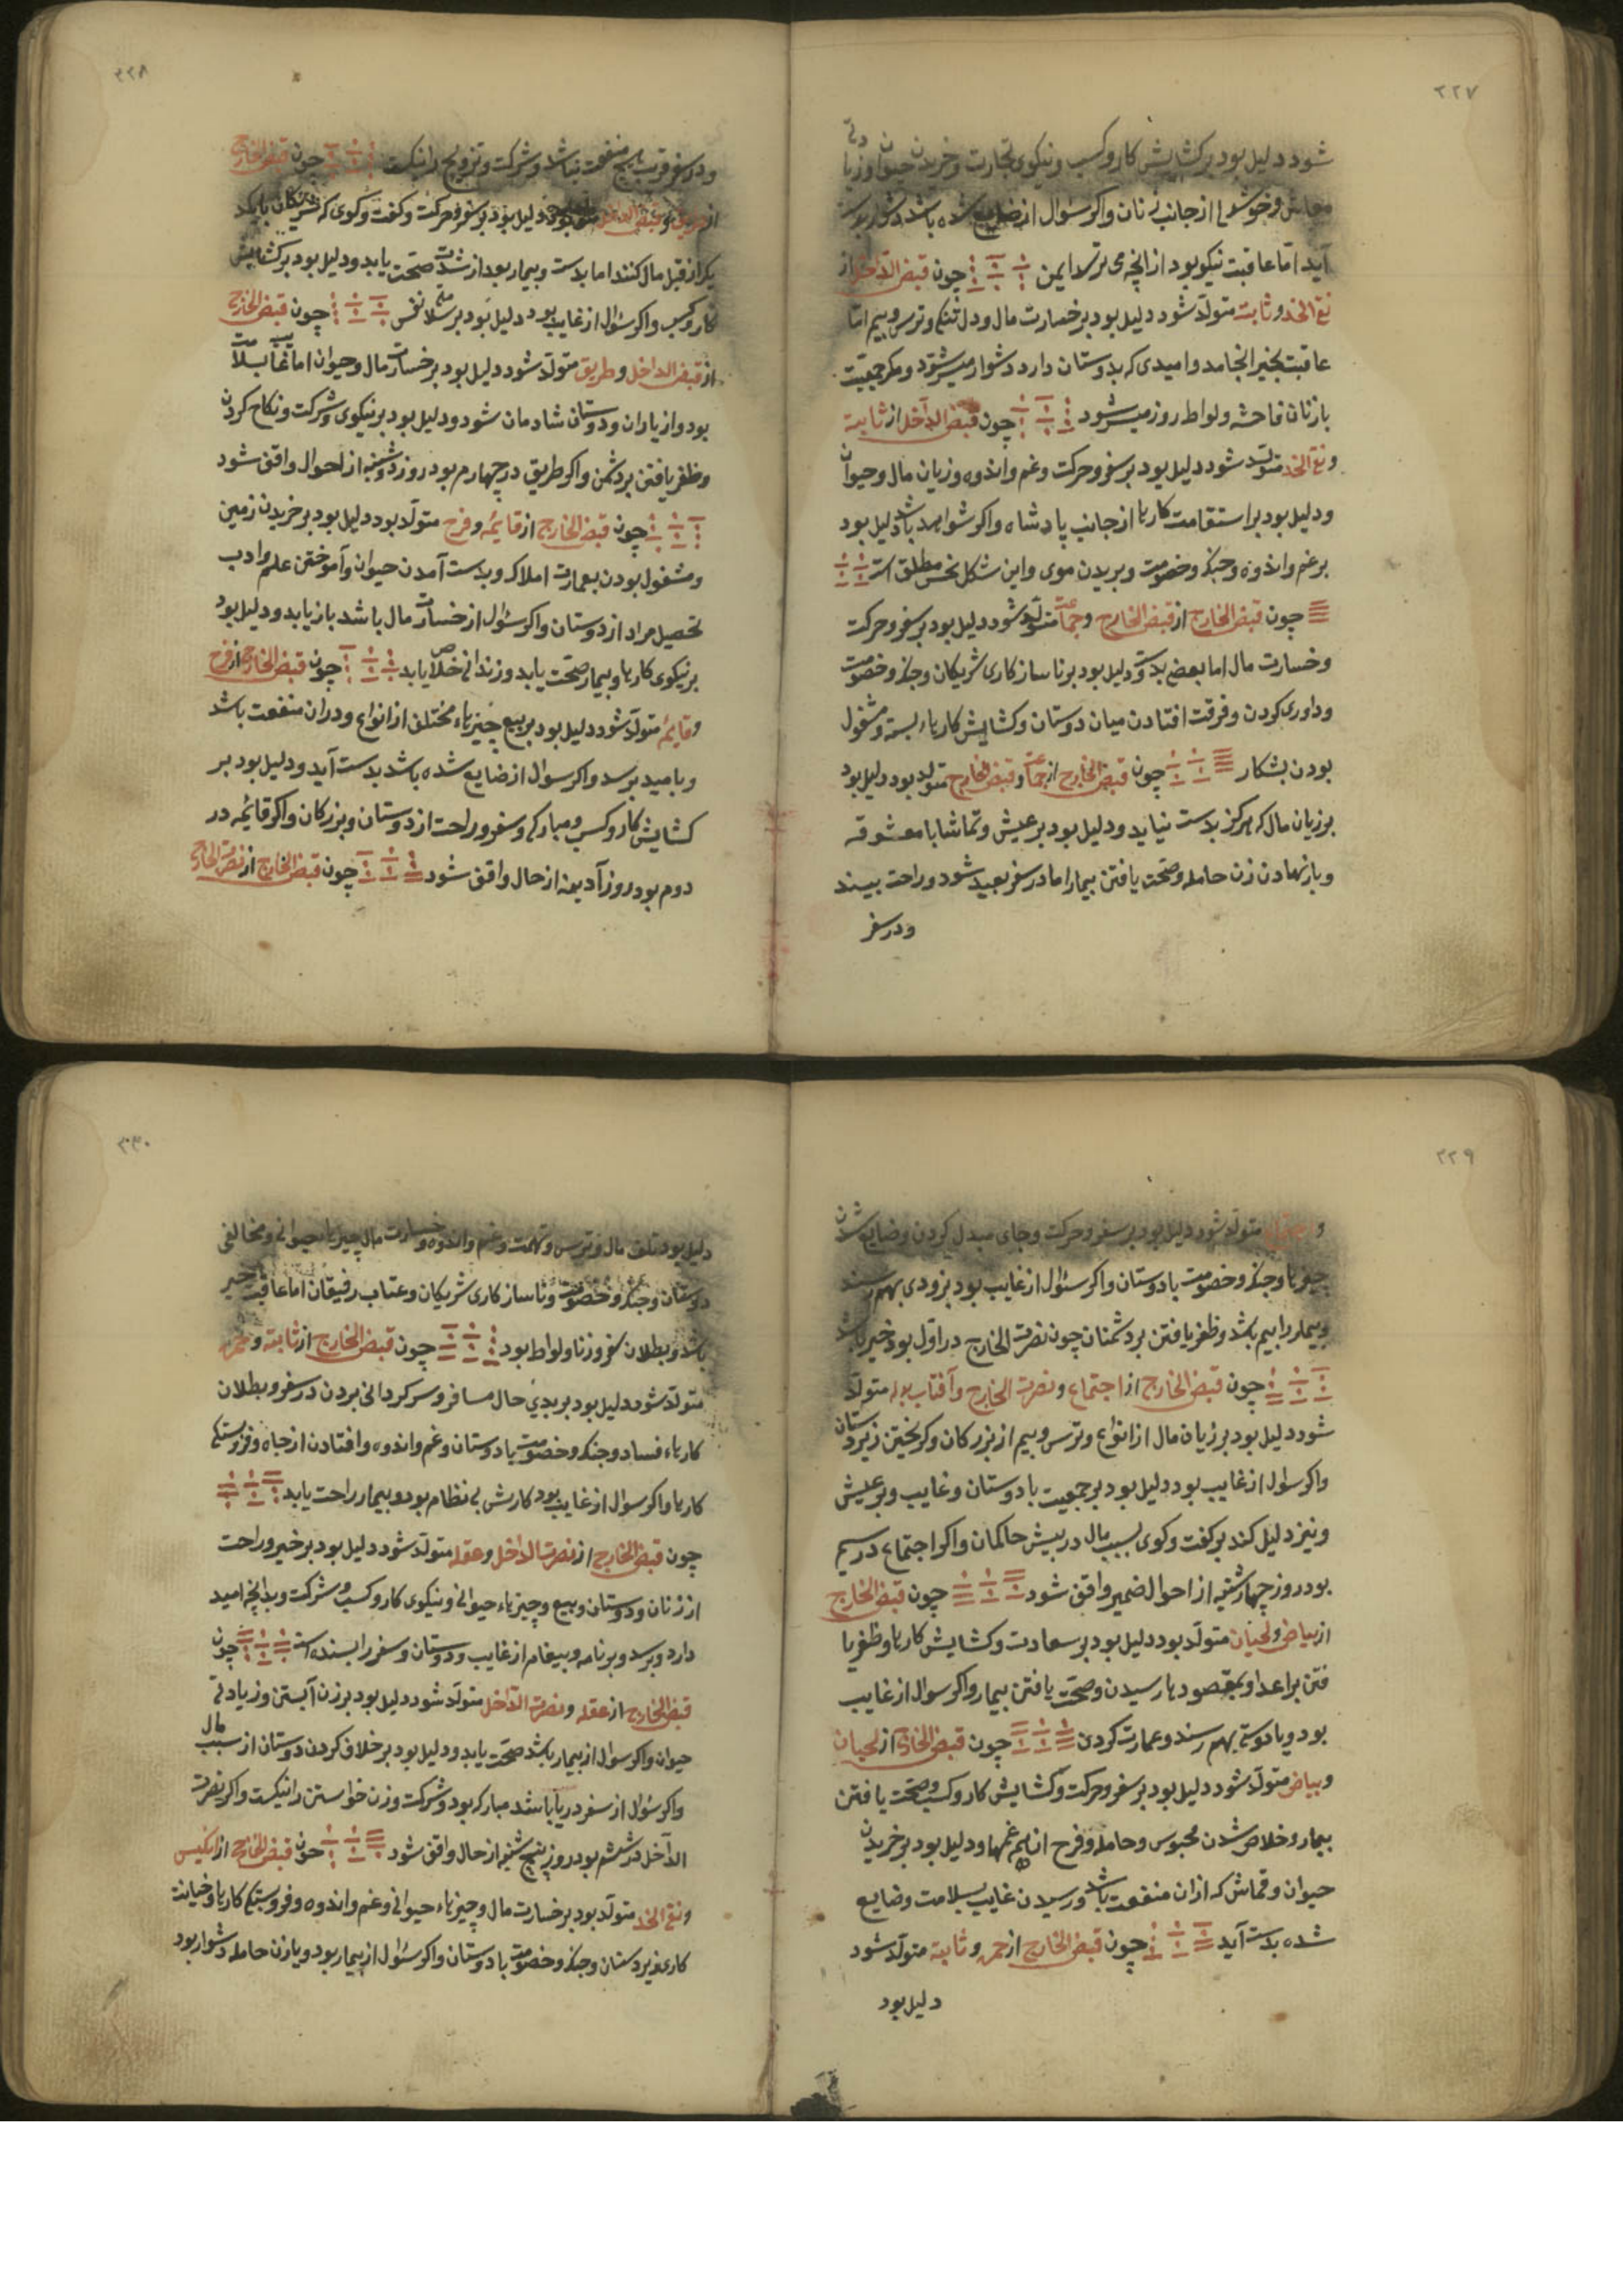 ۲۲۷
شود دلیل بود بر کشایش کار و کسب و نیکوی تجارت و خریدن حیوان و زیادتی
معاش و خوشدلی از جانب زنان و اکر سئوال از ضایع شده باشد بدست
آید اما عاقبت نیکو بود از آنچه می ترسد ایمن چون قبض الداخل از
نقی الخد و ثابته متولد شود دلیل بود بر خسارت مال و دل تنکی و ترس و بیم اما
عاقبت بخیر انجامد و امیدی که بدوستان دارد دشوار میسر شود و مکر جمعیت
با زنان فاحشه و لواط روز میسر شود چون قبض الداخل از ثابته
و نقی الخد متولد شود دلیل بود بر سفر و حرکت و غم و اندوه و زیان مال و حیوان
و دلیل بود بر استقامت کارها از جانب پادشاه و اکر شواهد بد باشد دلیل بود
بر غم و اندوه و جنک و خصومت و بریدن موی و این شکل نحس مطلق است
چون قبض الخارج از قبض الخارج و جماعت متولد شود دلیل بود بر سفر و حرکت
و خسارت مال اما بعضی بدست و دلیل بود بر ناسازکاری شریکان و جنک و خصومت
و داوری کردن و فرقت افتادن میان دوستان و کشایش کارهاء بسته و مشغول
بودن بشکار چون قبض الخارج از جماعت و قبض الخارج متولد بود دلیل بود
بر زیان مال که هرکز بدست نیاید و دلیل بود بر عیش و تماشا با معشوقه
و بار نهادن زن حامله و صحت یافتن بیمار اما در سفر بعید شود و راحت بیند
و در سفر
۲۲۸
و در سفر قریب هیچ منفعت نباشد و شرکت و تزویج را نیکست چون قبض الخارج
از طریق و قبض الداخل متولد بود دلیل بود بر سفر و حرکت و کفت و کوی که شریکان با یکد
یکر از قبل مال کنند اما بدست و بیمار بعد از شدت صحت یابد و دلیل بود بر کشایش
کار و کسب و اکر سئوال از غایب بود دلیل بود بر سلامتی نفس چون قبض الخارج
از قبض الداخل و طریق متولد شود دلیل بود بر خسارت مال و حیوان اما غایب بسلامت
بود و از یاران و دوستان شادمان شود و دلیل بود بر نیکوی و شرکت و نکاح کردن
و ظفر یافتن بر دشمن و اکر طریق در چهارم بود روز دوشنبه از احوال واقف شود
چون قبض الخارج از قایمه و فرح متولد بود دلیل بود بر خریدن زمین
و مشغول بودن بعمارت املاک و بدست آمدن حیوان و آموختن علم و ادب
تحصیل مراد از دوستان و اکر سئوال از خسارت مال باشد باز یابد و دلیل بود
بر نیکوی کارها و بیمار صحت یابد و زندانی خلاص یابد چون قبض الخارج از فرح
و قایمه متولد شود دلیل بود بر بیع چیزهاء مختلف از انواع و در ان منفعت باشد
و بامید برسد و اکر سوال از ضایع شده باشد بدست آید و دلیل بود بر
کشایش کار و کسب و مبارکی و سفر و راحت از دوستان و بزرکان و اکر قایمه در
دوم بود روز آدینه از حال واقف شود چون قبض الخارج از نصرت الخارج
۲۲۹
و اجتماع متولد شود دلیل بود بر سفر و حرکت و جای مبدل کردن و ضایع شدن
چیزها و جنک و خصومت با دوستان و اکر سئوال از غایب بود بزودی بهم رسند
و بیمار را بیم باشد و ظفر یافتن بر دشمنان چون نصرت الخارج در اول بود خیر باشد
چون قبض الخارج از اجتماع و نصرت الخارج و آفتاب بوله متولد
شود دلیل بود بر زیان مال از انواع و ترس و بیم از بزرکان و کریختن زیردستان
و اکر سوال از غایب بود دلیل بود بر جمعیت با دوستان و غایب و بر عیش
و نیز دلیل کند بر کفت و کوی بسبب مال در پیش حاکمان و اکر اجتماع در سیم
بود روز چهارشنبه از احوال ضمیر واقف شود چون قبض الخارج
از بیاض و لحیان متولد بود دلیل بود بر سعادت و کشایش کارها و ظفر یا
فتن بر اعدا و بمقصودها رسیدن و صحت یافتن بیمار و اکر سوال از غایب
بود و یا دوستی بهم رسند و عمارت کردن چون قبض الخارج از لحیان
و بیاض متولد شود دلیل بود بر سفر و حرکت و کشایش کار و کسب و صحت یافتن
بیمار و خلاص شدن محبوس و حامله و فرح از همه غمها و دلیل بود بر خریدن
حیوان و قماش که ازان منفعت باشد و رسیدن غایب بسلامت و ضایع
شده بدست آید چون قبض الخارج از حمره و ثابته متولد شود
دلیل بود
۲۳۰
دلیل بود بتلف مال و ترس و تهمت و غم و اندوه و خسارت مال چیزهاء حیوانی و مخالفی
دوستان و جنک و خصومت و ناسازکاری شریکان و عتاب رفیقان اما عاقبت خیر
باشد و بطلان سفر و زنا و لواط بود چون قبض الخارج از ثابته و حمره
متولد شود دلیل بود بر بدی حال مسافر و سرکردانی بردن در سفر و بطلان
کارهاء فساد و جنک و خصومت با دوستان و غم و اندوه و افتادن از جاه و فروبستکی
کارها و اکر سوال از غایب بود کارش بی نظام بود و بیمار راحت یابد
چون قبض الخارج از نصرت الداخل و عقله متولد شود دلیل بود بر خیر و راحت
از زنان و دوستان و بیع و چیزهاء حیوانی و نیکوی کار و کسب و شرکت و بدانچه امید
دارد و برسد و بر نامه و پیغام از غایب و دوستان و سفر را بسنده است چون
قبض الخارج از عقله و نصرت الداخل متولد شود دلیل بود بر زن آبستن و زیادتی
حیوان و اکر سوال از بیمار باشد صحت یابد و دلیل بود بر خلاف کردن دوستان از سبب مال
و اکر سئوال از سفر دریا باشد مبارک بود و شرکت و زن خواستن را نیکست و اکر نصرت
الداخل در ششم بود روز پنج شنبه از حال واقف شود چون قبض الخارج از انکیس
و نقی الخد متولد بود بر خسارت مال و چیزهاء حیوانی و غم و اندوه و فروبستکی کارها و خیانت
کاری زیردستان و جنک و خصومت با دوستان و اکر سئوال از بیمار بود و یا زن حامله دشوار بود